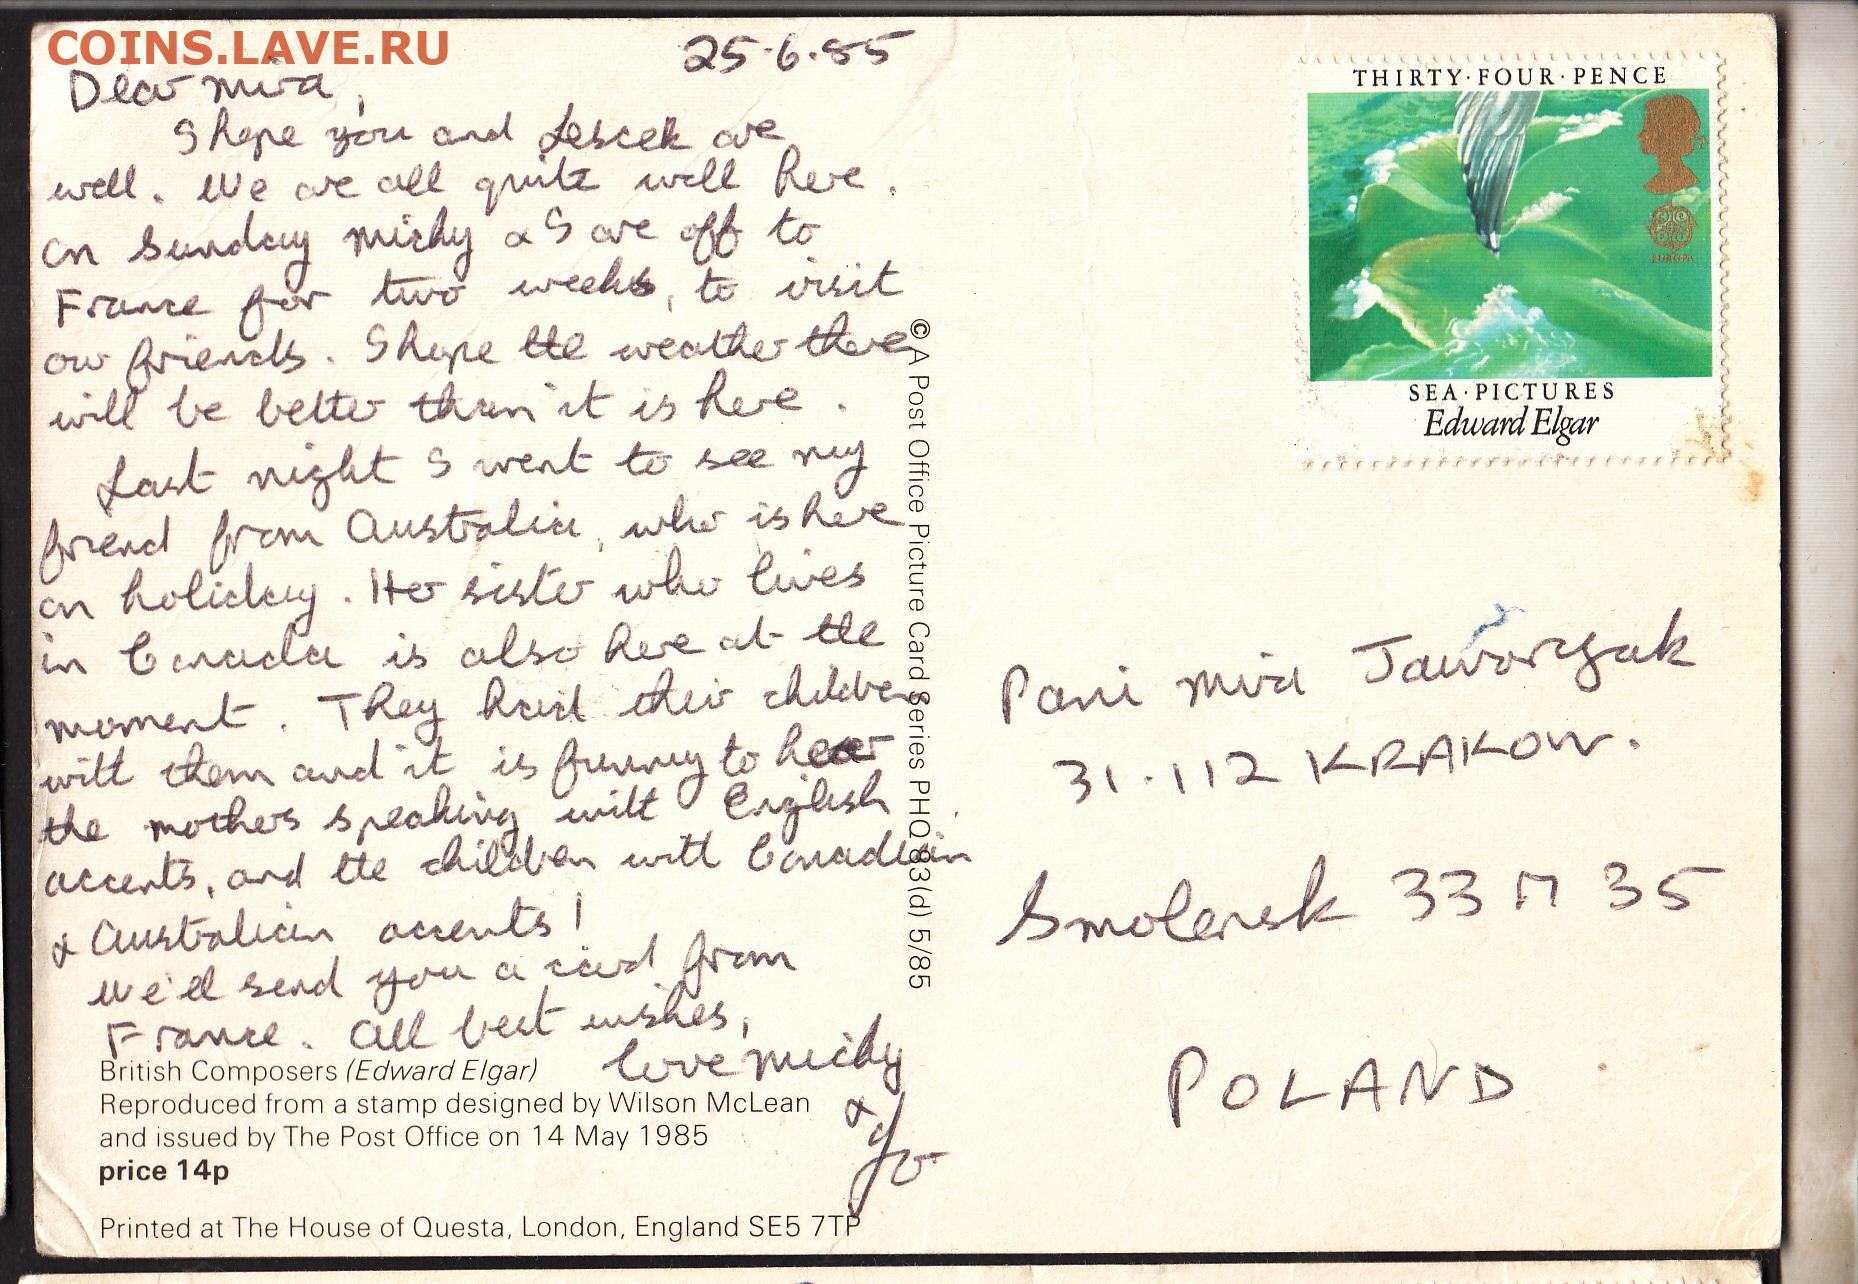 COINS.LAVE.RU
25·6·85
Dear Mira,
I hope you and Lescek are
well. We are all quite well here.
On Sunday Micky & I are off to
France for two weeks, to visit
our friends. I hope the weather there
will be better than it is here.
Last night I went to see my
friend from Australia, who is here
on holiday. Her sister who lives
in Canada is also here at the
moment. They had their children
with them and it is funny to hear
the mothers speaking with English
accents, and the children with Canadian
& Australian accents!
We'll send you a card from
France. All best wishes,
love Micky
&
British Composers (Edward Elgar)
Reproduced from a stamp designed by Wilson McLean
and issued by The Post Office on 14 May 1985
price 14p
Printed at The House of Questa, London, England SE5 7TP
© A Post Office Picture Card Series PHQ 83(d) 5/85
THIRTY·FOUR·PENCE
EUROPA
SEA·PICTURES
Edward Elgar
Pani Mira Jaworzak
31·112 KRAKOW.
Smolensk 33 M 35
POLAND